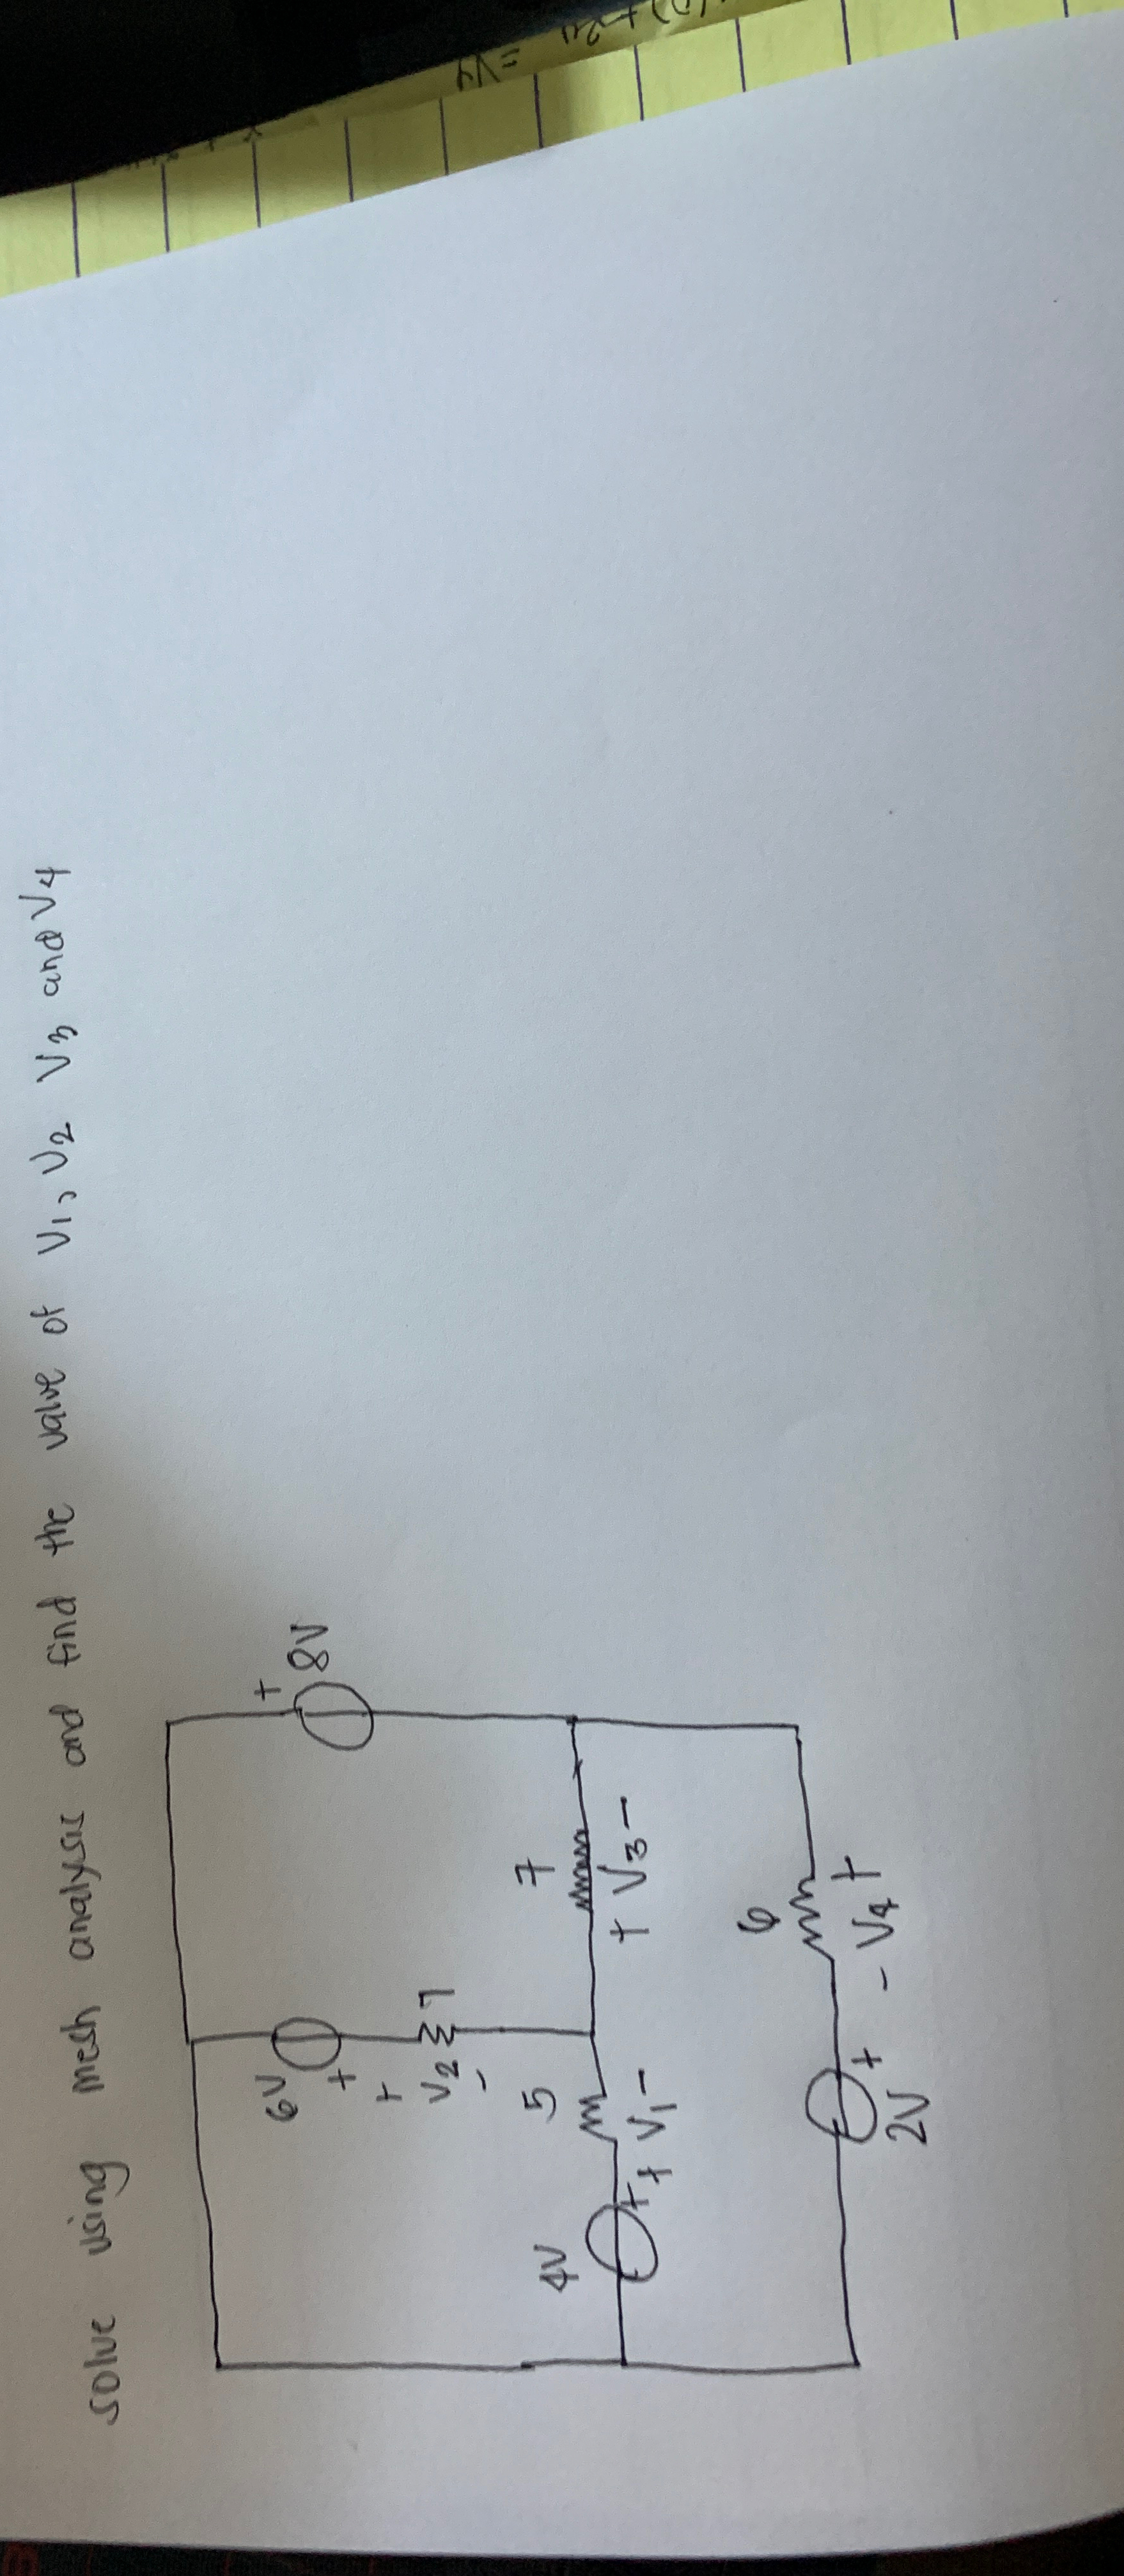 solve using mesh analysis and find the value of V1, V2 V3 and V4
6V
+
+
V2
-
1
+
8V
4V
+
5
+ V1 -
7
+ V3 -
6
- V4 +
2V
+
= V4